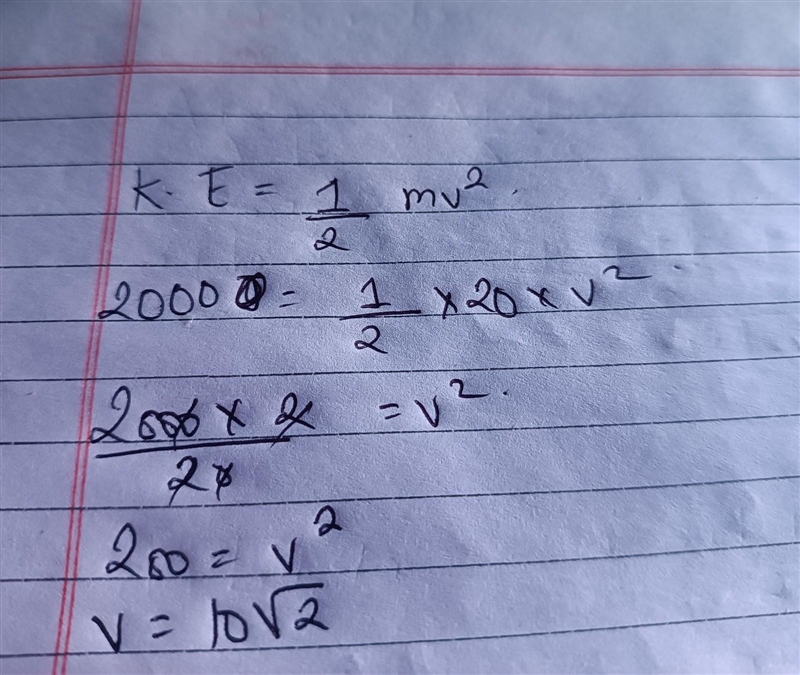 K. E = 1/2 mv².
2000 = 1/2 × 20 × v².
2000 × 2 / 20 = v².
200 = v²
v = 10√2